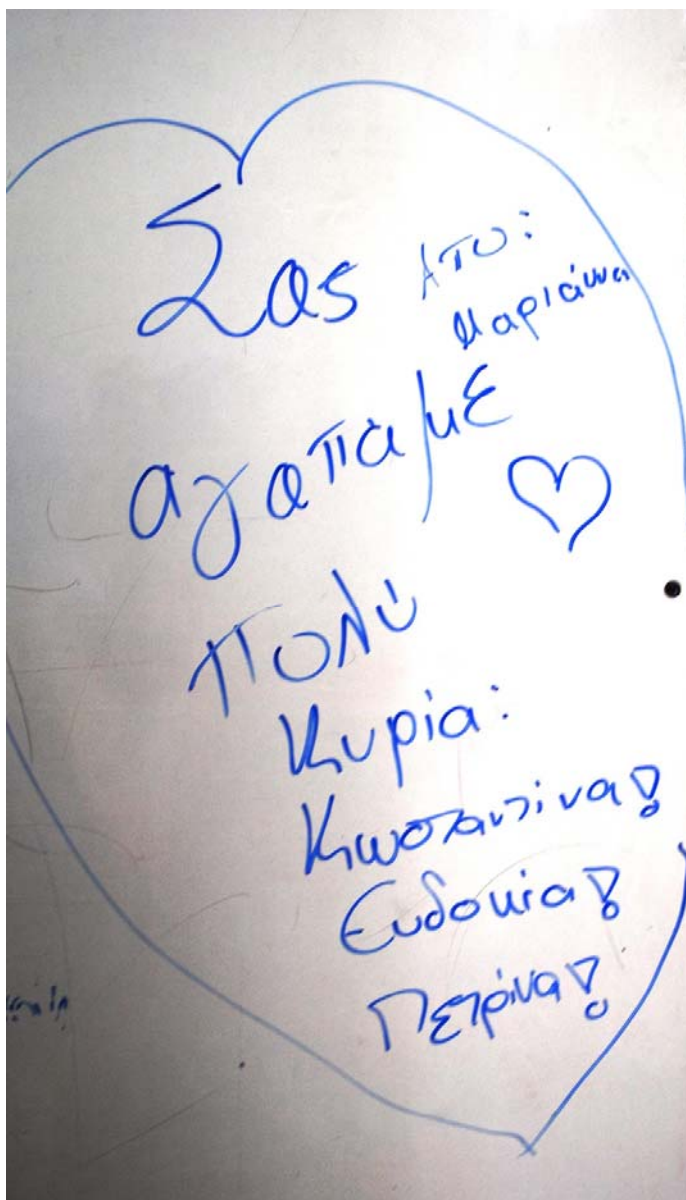 Σας
Από:
Μαριάννα
αγαπάμε
πολύ
Κυρία:
Κωσταντίνα!
Ευδοκία!
Πετρίνα!